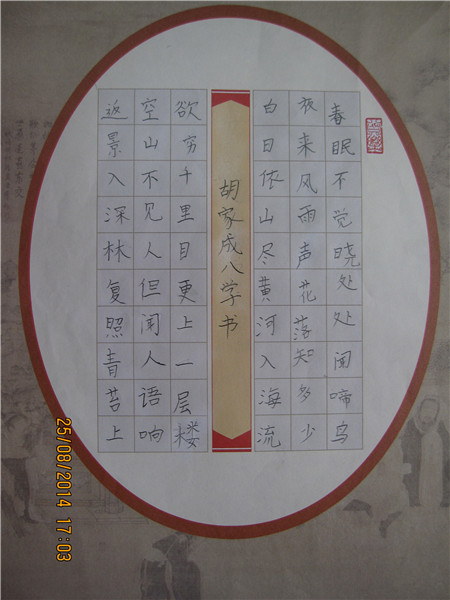 春眠不觉晓处处闻啼鸟
夜来风雨声花落知多少
白日依山尽黄河入海流
胡家成八学书
欲穷千里目更上一层楼
空山不见人但闻人语响
返景入深林复照青苔上
25/08/2014 17:03